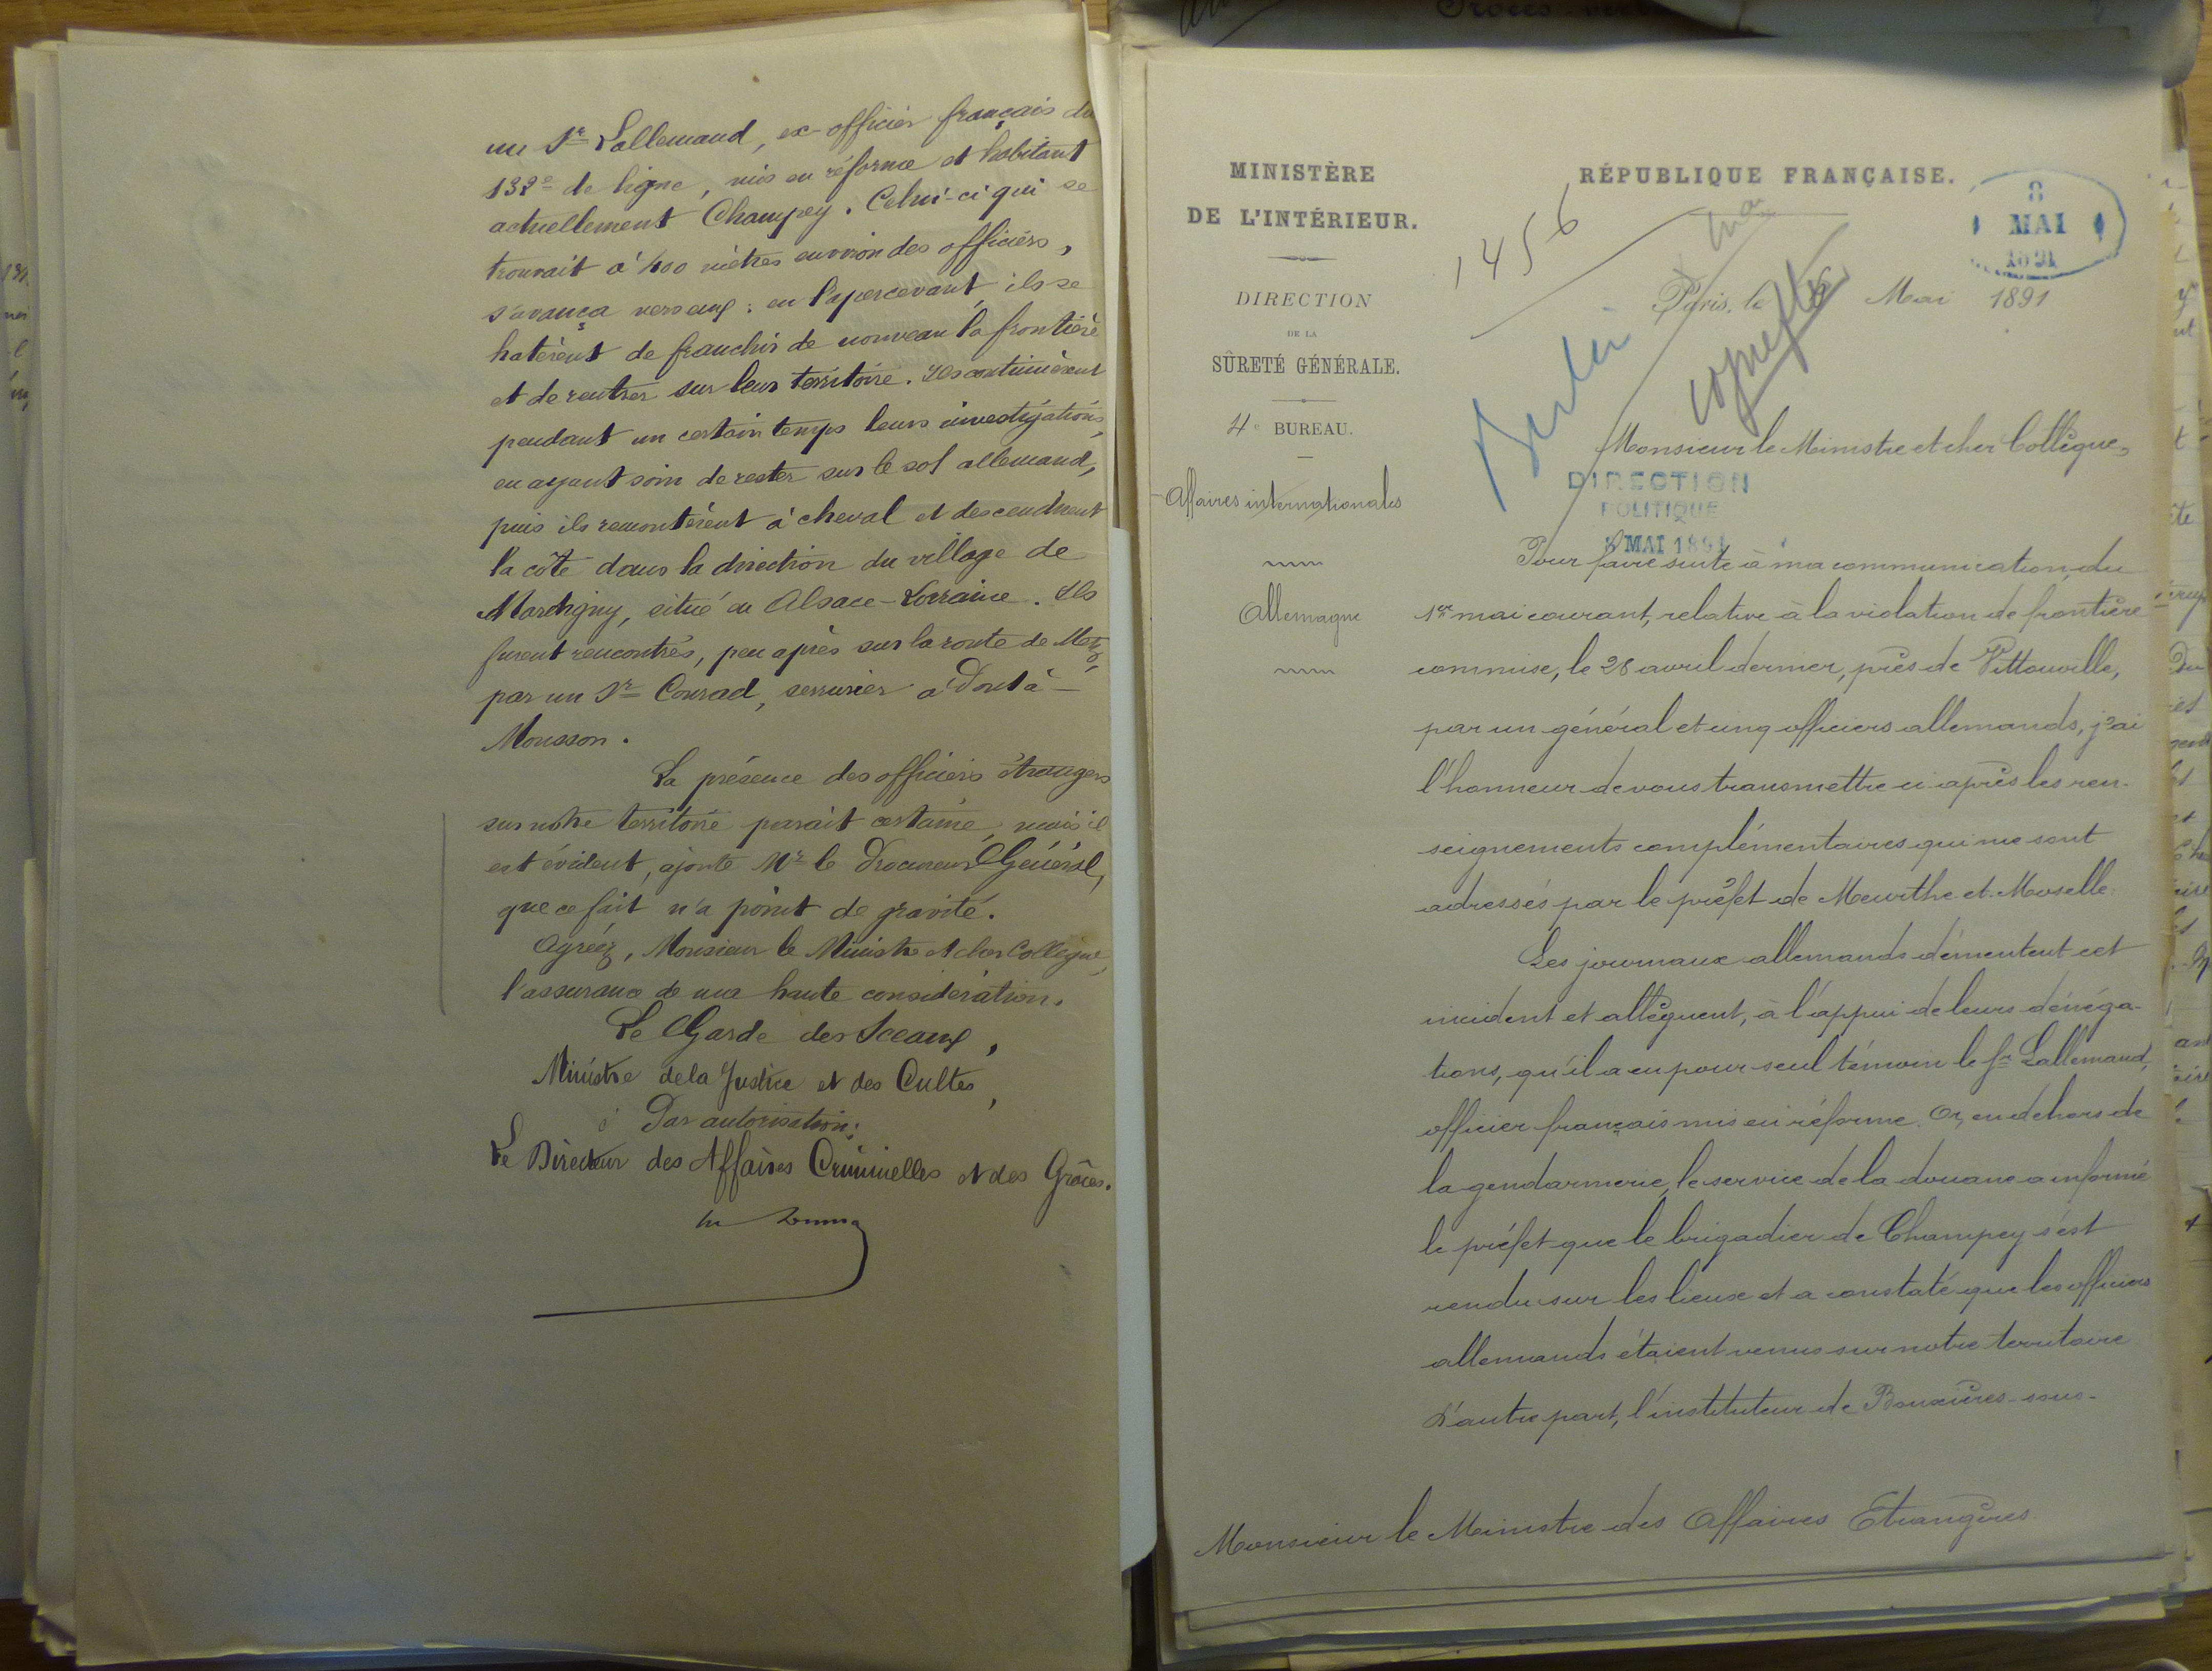 un Sr Lallemand, ex-officier français du
132e de ligne, mis en réforme et habitant
actuellement Champey. Celui-ci qui se
trouvait à 400 mètres environ des officiers,
s'avança vers eux : en l'apercevant ils se
hatèrent de franchir de nouveau la frontière
et de rentrer sur leur territoire. Ils continuèrent
pendant un certain temps leurs investigations,
en ayant soin de rester sur le sol allemand,
puis ils remontèrent à cheval et descendirent
la côte dans la direction du village de
Mardigny, situé en Alsace-Lorraine. Ils
furent rencontrés, peu après sur la route de Metz,
par un Sr Conrad, serrurier à Pont à-
Mousson.
La présence des officiers étrangers
sur notre territoire paraît certaine, mais il
est évident, ajoute Mr le Procureur Général,
que ce fait n'a point de gravité.
Agréez, Monsieur le Ministre et cher Collègue,
l'assurance de ma haute considération.
Le Garde des Sceaux,
Ministre de la Justice et des Cultes,
Par autorisation :
Le Directeur des Affaires Criminelles et des Grâces.
MINISTÈRE
DE L'INTÉRIEUR.
DIRECTION
DE LA
SÛRETÉ GÉNÉRALE.
4e BUREAU.
Affaires internationales
Allemagne
RÉPUBLIQUE FRANÇAISE.
8
MAI
1891
1456
Berlin
Paris, le 6 Mai 1891
Monsieur le Ministre et cher Collègue,
DIRECTION
POLITIQUE
8 MAI 1891
Pour faire suite à ma communication du
1er mai courant, relative à la violation de frontière
commise, le 28 avril dernier, près de Vittonville,
par un général et cinq officiers allemands, j'ai
l'honneur de vous transmettre ci-après les ren-
seignements complémentaires qui me sont
adressés par le préfet de Meurthe et Moselle.
Les journaux allemands démentent cet
incident et allèguent, à l'appui de leurs dénéga-
tions, qu'il a eu pour seul témoin le Sr Lallemand,
officier français mis en réforme. Or, en dehors de
la gendarmerie, le service de la douane a informé
le préfet que le brigadier de Champey s'est
rendu sur les lieux et a constaté que les officiers
allemands étaient venus sur notre territoire
D'autre part, l'instituteur de Bouxières-sous-
Monsieur le Ministre des Affaires Etrangères